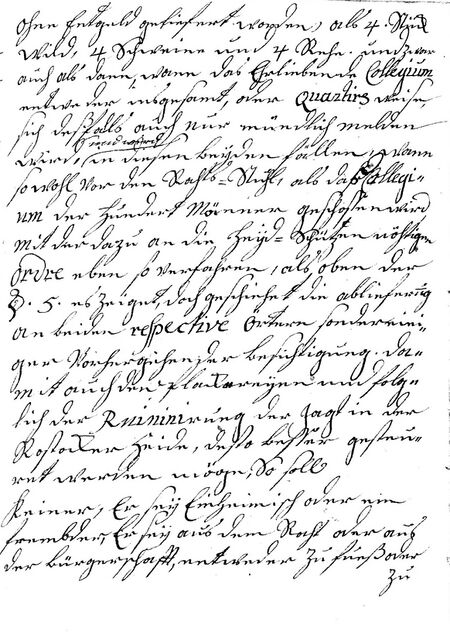 ohne Entgeld geliefert worden, als 4. Stück
Wild, 4 Schweine und 4 Rehe. und zwar
auch als dann, wann das Ehrliebende Collegium
entweder insgesamt, oder Quartirs weise,
sich deßfalls auch nur mündlich melden
wird, in diesen beyden fällen, wann
so wohl vor den Rahts-Stuhl, als das Collegi-
um der Hundert Männer geschossen wird
mit der dazu an die Heyd-Schützen nöhtigen
Ordre eben so verfahren, als oben der
§. 5. es zeiget, doch geschiehet die ablieferung
an beiden respective Örtern sonder eini-
ger Vorhergehender besichtigung. Da-
mit auch den Plackereyen und folg-
lich der Ruininirung der Jagt in der
Rostocker Heide, desto besser gesteu-
ret werden möge, So soll
Keiner, Er sey Einheimisch oder ein
frembder, Er sey aus dem Raht oder aus
der Bürgerschafft, entweder zu fueß oder
zu